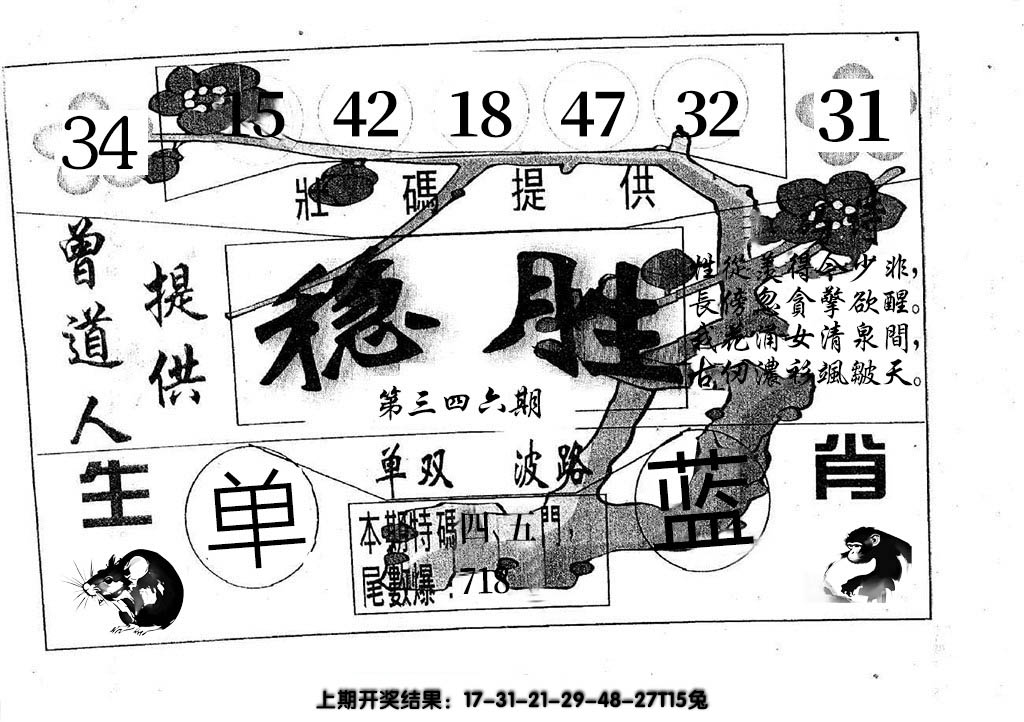 34 15 42 18 47 32 31
壯碼提供
曾道人
提供
稳胜
第三四六期
性從羨得令少非，
長傍忽貪擎欲醒。
花涌女清泉間，
古仞濃衫颯皺天。
单双 波路
生 单 蓝 肖
本期特碼四、五門，
尾數爆：718
上期开奖结果：17-31-21-29-48-27T15兔